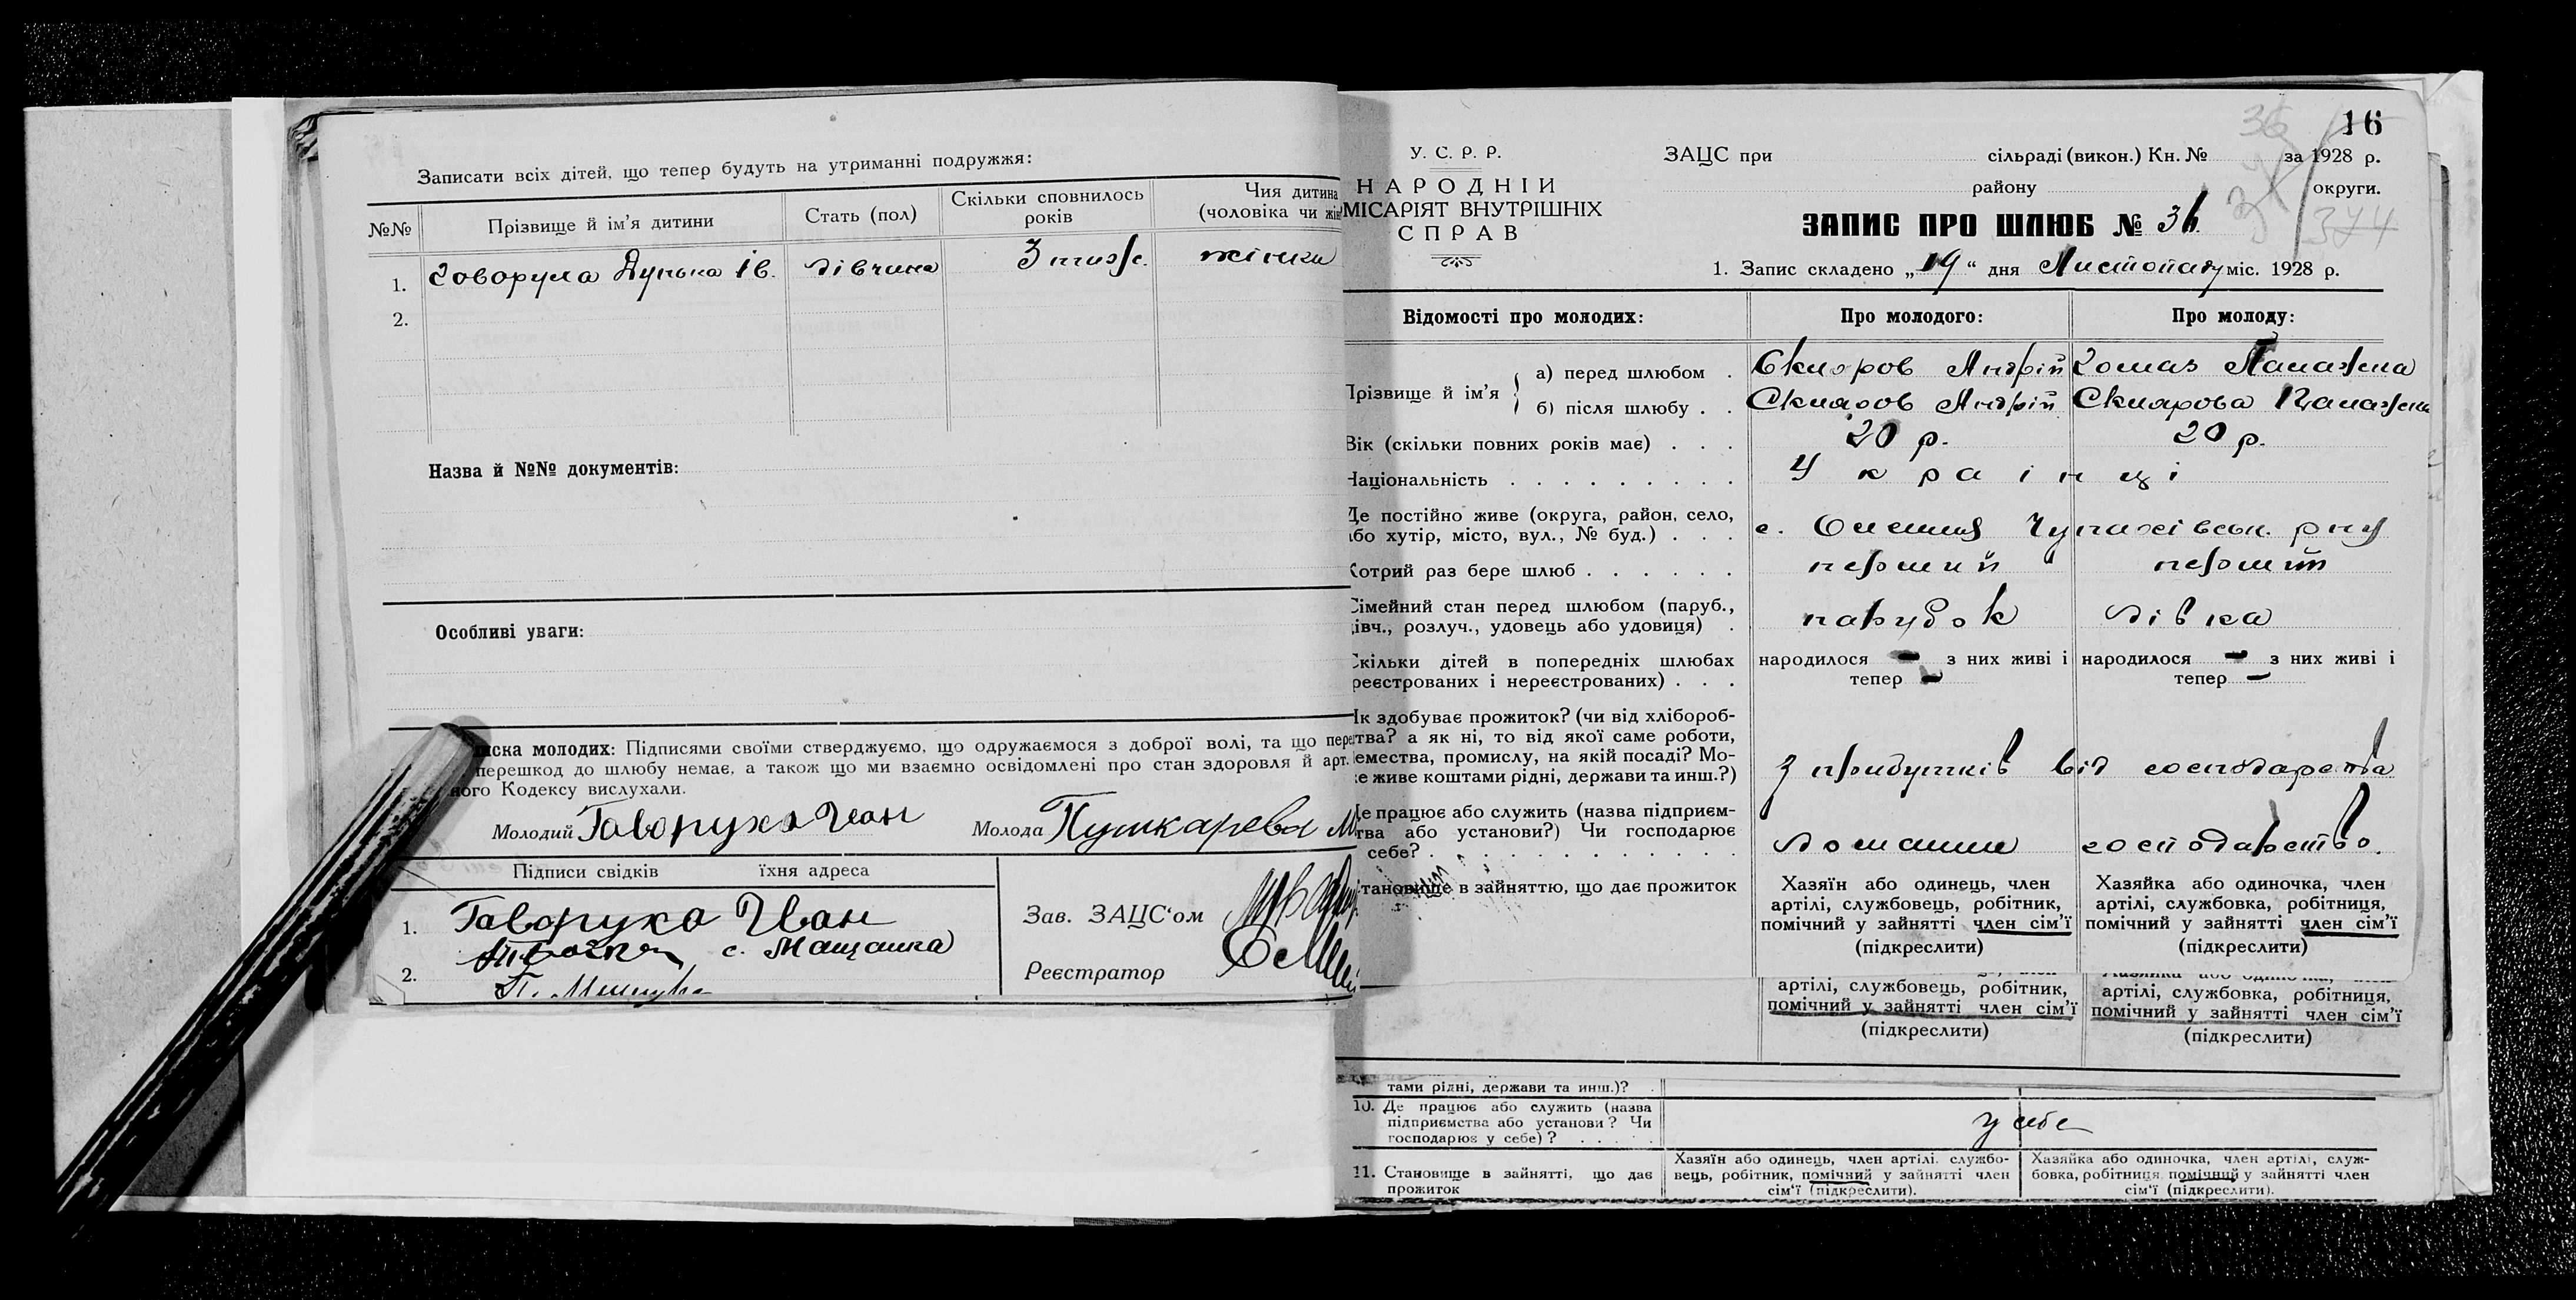 Записати всіх дітей, що тепер будуть на утриманні подружжя:
№№ Прізвище й ім'я дитини Стать (пол) Скільки сповнилось років Чия дитина (чоловіка чи жін
1. Говоруха Дунька Ів. дівчина 3 тиж. жінки
2.
Назва й №№ документів:
Особливі уваги:
иска молодих: Підписями своїми стверджуємо, що одружаємося з доброї волі, та що пере
перешкод до шлюбу немає, а також що ми взаємно освідомлені про стан здоровля й арт.
ного Кодексу вислухали.
Молодий Говоруха Иван Молода Пушкарева М
Підписи свідків їхня адреса
1. Говоруха Иван
с. Мащанка
2.
Зав. ЗАЦС'ом
Реєстратор
16
36
374
У. С. Р. Р.
НАРОДНІЙ
МІСАРІЯТ ВНУТРІШНІХ
СПРАВ
ЗАЦС при сільраді (викон.) Кн. № за 1928 р.
району округи.
ЗАПИС ПРО ШЛЮБ № 36
1. Запис складено „19“ дня Листопаду міс. 1928 р.
Відомості про молодих: Про молодого: Про молоду:
Прізвище й ім'я а) перед шлюбом . Скляров Андрій Хомаз Палажка
б) після шлюбу . . Скляров Андрій Склярова Палажка
Вік (скільки повних років має) . . . 20 р. 20 р.
Національність . . . . . . . . . Українці
Де постійно живе (округа, район, село,
або хутір, місто, вул., № буд.) . . . с. Олешня Чупахівськ. р-ну
Котрий раз бере шлюб . . . . . . перший перший
Сімейний стан перед шлюбом (паруб.,
дівч., розлуч., удовець або удовиця) . парубок дівка
Скільки дітей в попередніх шлюбах народилося - з них живі і народилося - з них живі і
реєстрованих і нереєстрованих) . . . тепер - тепер -
Як здобуває прожиток? (чи від хлібороб-
тва? а як ні, то від якої саме роботи,
емества, промислу, на якій посаді? Мо-
е живе коштами рідні, держави та инш.?) з прибутків від господарства
Де працює або служить (назва підприєм-
тва або установи?) Чи господарює
себе? . . . . . . . . . . . домашнє господарство.
тановище в зайняттю, що дає прожиток
Хазяїн або одинець, член
артілі, службовець, робітник,
помічний у зайнятті член сім'ї
(підкреслити)
Хазяйка або одиночка, член
артілі, службовка, робітниця,
помічний у зайнятті член сім'ї
(підкреслити)
артілі, службовець, робітник,
помічний у зайнятті член сім'ї
(підкреслити)
артілі, службовка, робітниця,
помічний у зайнятті член сім'ї
(підкреслити)
тами рідні, держави та инш.)?
10. Де працює або служить (назва
підприємства або установи? Чи
господарює у себе)? . . . . . у себе
11. Становище в зайнятті, що дає
прожиток
Хазяїн або одинець, член артілі, службо-
вець, робітник, помічний у зайнятті член
сім'ї (підкреслити).
Хазяйка або одиночка, член артілі, служ-
бовка, робітниця, помічний у зайнятті член
сім'ї (підкреслити).